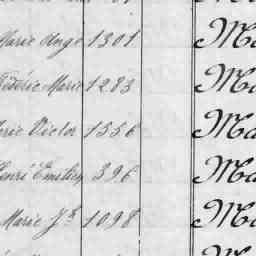 Marie Ange 1301 Ma
Marie 1283 Ma
Victor 1556 Ma
Henri Emilien 396 Ma
Marie Jh 1098 Ma